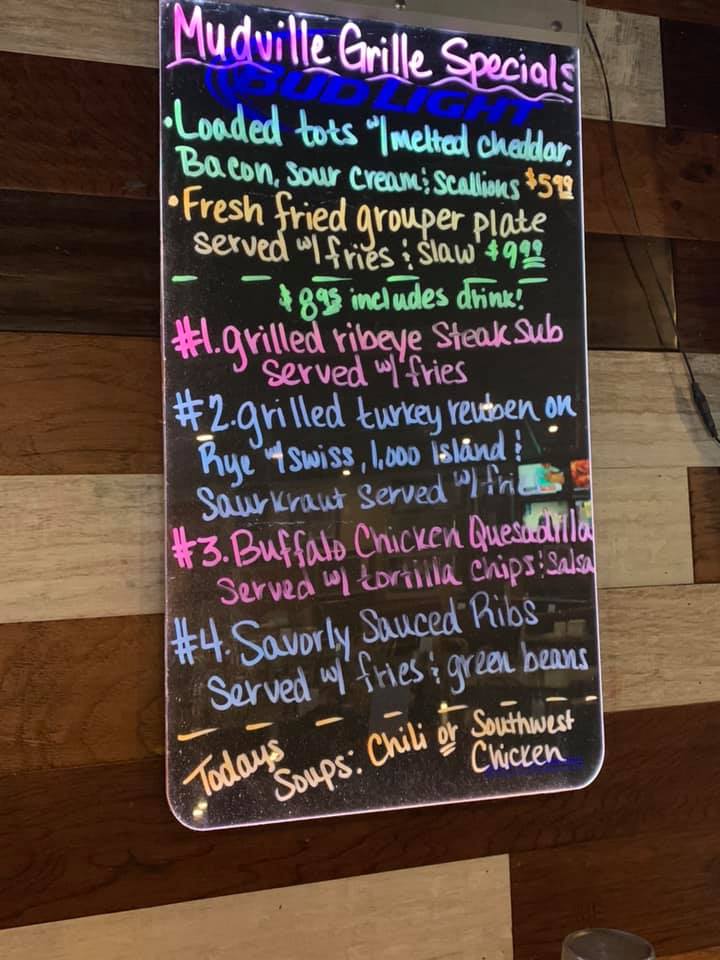 Mudville Grille Specials
BUD LIGHT
•Loaded tots w/melted cheddar,
Bacon, sour cream & Scallions $5.99
•Fresh fried grouper plate
served w/ fries & Slaw $9.99
$8.95 includes drink!
#1. grilled ribeye Steak Sub
Served w/ fries
#2. grilled turkey reuben on
Rye w/ Swiss, 1,000 Island &
Saurkraut Served w/ frie
#3. Buffalo Chicken Quesadilla
Served w/ tortilla chips & Salsa
#4. Savorly Sauced Ribs
Served w/ fries & green beans
Todays
Soups: Chili or Southwest
Chicken